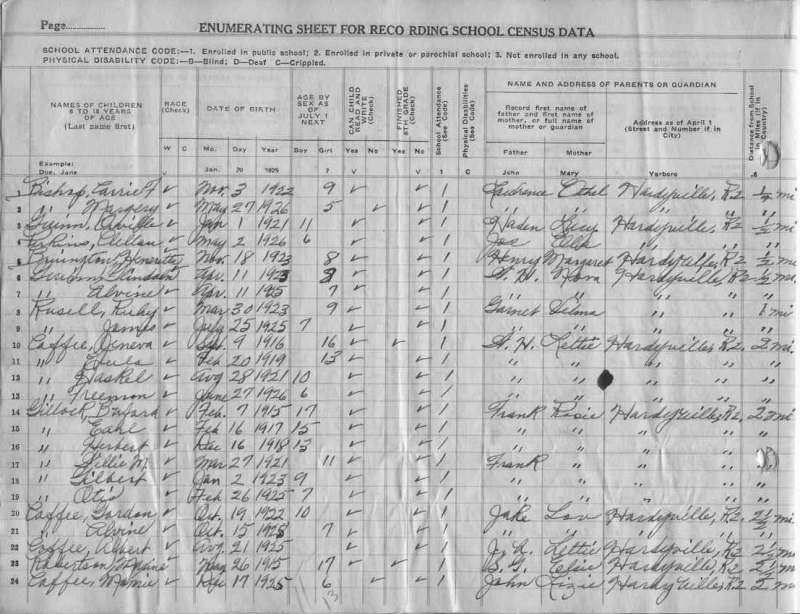 Page
ENUMERATING SHEET FOR RECO RDING SCHOOL CENSUS DATA
SCHOOL ATTENDANCE CODE:—1. Enrolled in public school; 2. Enrolled in private or parochial school; 3. Not enrolled in any school.
PHYSICAL DISABILITY CODE:—B—Blind; D—Deaf C—Crippled.
NAMES OF CHILDREN 6 TO 18 YEARS OF AGE (Last name first)
RACE (Check)
DATE OF BIRTH
AGE BY SEX AS OF JULY 1 NEXT
CAN CHILD READ AND WRITE (Check)
FINISHED 8TH GRADE (Check)
School Attendance (See Code)
Physical Disabilities (See Code)
NAME AND ADDRESS OF PARENTS OR GUARDIAN
Record first name of father and first name of mother, or full name of mother or guardian
Address as of April 1 (Street and Number if in City)
Distance from School in Miles (if in Country)
W C Mo. Day Year Boy Girl Yes No Yes No Father Mother
Example:
Doe, Jane V Jan. 20 1925 7 V V 1 C John Mary Yarboro .6
1 Bishop, Carrie F ✓ Nov. 3 1922 9 ✓ ✓ 1 Ethel Hardyville, R2 1/2 mi
2 " Margery ✓ May 27 1926 5 ✓ ✓ 1 " " " " "
3 ✓ Jan 1 1921 11 ✓ ✓ 1 Lucy Hardyville, R2 1/2 mi
4 ✓ May 2 1926 6 ✓ ✓ 1 Joe " " "
5 ✓ Nov. 18 1923 8 ✓ ✓ 1 Henry Margaret Hardyville, R2 1/2 mi
6 ✓ Apr. 11 1923 ✓ ✓ 1 Hardyville, R2 1/2 mi.
7 " Alvine ✓ Apr. 11 1925 7 ✓ ✓ 1 " " " " "
8 Russell, Ruby ✓ Mar 30 1923 9 ✓ ✓ 1 Garnet Selma " " 1 mi
9 " James ✓ July 25 1925 7 ✓ ✓ 1 " " " " "
10 Coffee, Geneva ✓ 9 1916 16 ✓ ✓ 1 Lettie Hardyville, R2. 2 mi.
11 " ✓ Feb 20 1919 13 ✓ ✓ 1 " " " " "
12 " Haskel ✓ Aug 28 1921 10 ✓ ✓ 1 " " " " "
13 " Freeman ✓ June 27 1926 6 ✓ ✓ 1 " " " " "
14 Gillock, Buford ✓ Feb. 7 1915 17 ✓ ✓ 1 Frank Rosie Hardyville, R2, 2 mi
15 " Earl ✓ Feb 16 1917 15 ✓ ✓ 1 " " " " "
16 " Herbert ✓ Dec 16 1918 13 ✓ ✓ 1 " " " " "
17 " Lillie M. ✓ Mar 27 1921 11 ✓ ✓ 1 Frank " " " "
18 " Gilbert ✓ Jan 2 1923 9 ✓ ✓ 1 " " " " "
19 " Otis ✓ Feb 26 1925 7 ✓ ✓ 1 " " " " "
20 Coffee, Gordon ✓ Oct. 19 1922 10 ✓ ✓ 1 Jake Lou Hardyville, R2. 2 1/2 mi.
21 " Alvine ✓ Oct. 15 1925 7 ✓ ✓ 1 " " " " "
22 Coffee, Albert ✓ Aug. 21 1925 ✓ ✓ 1 Lettie Hardyville, R2 2 1/2 mi
23 Robertson, ✓ May 26 1915 17 ✓ ✓ 1 Elsie Hardyville, R2 2 1/2 mi
24 Coffee, Mamie ✓ Dec 17 1925 6 ✓ ✓ 1 John Lizzie Hardyville, R2 2 mi